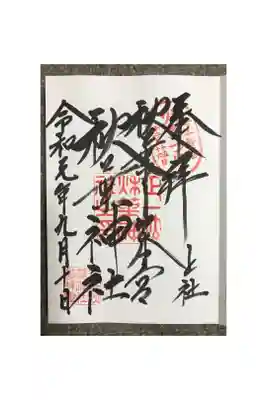 奉拝
上社
秋葉山本宮
秋葉神社
令和元年九月十日